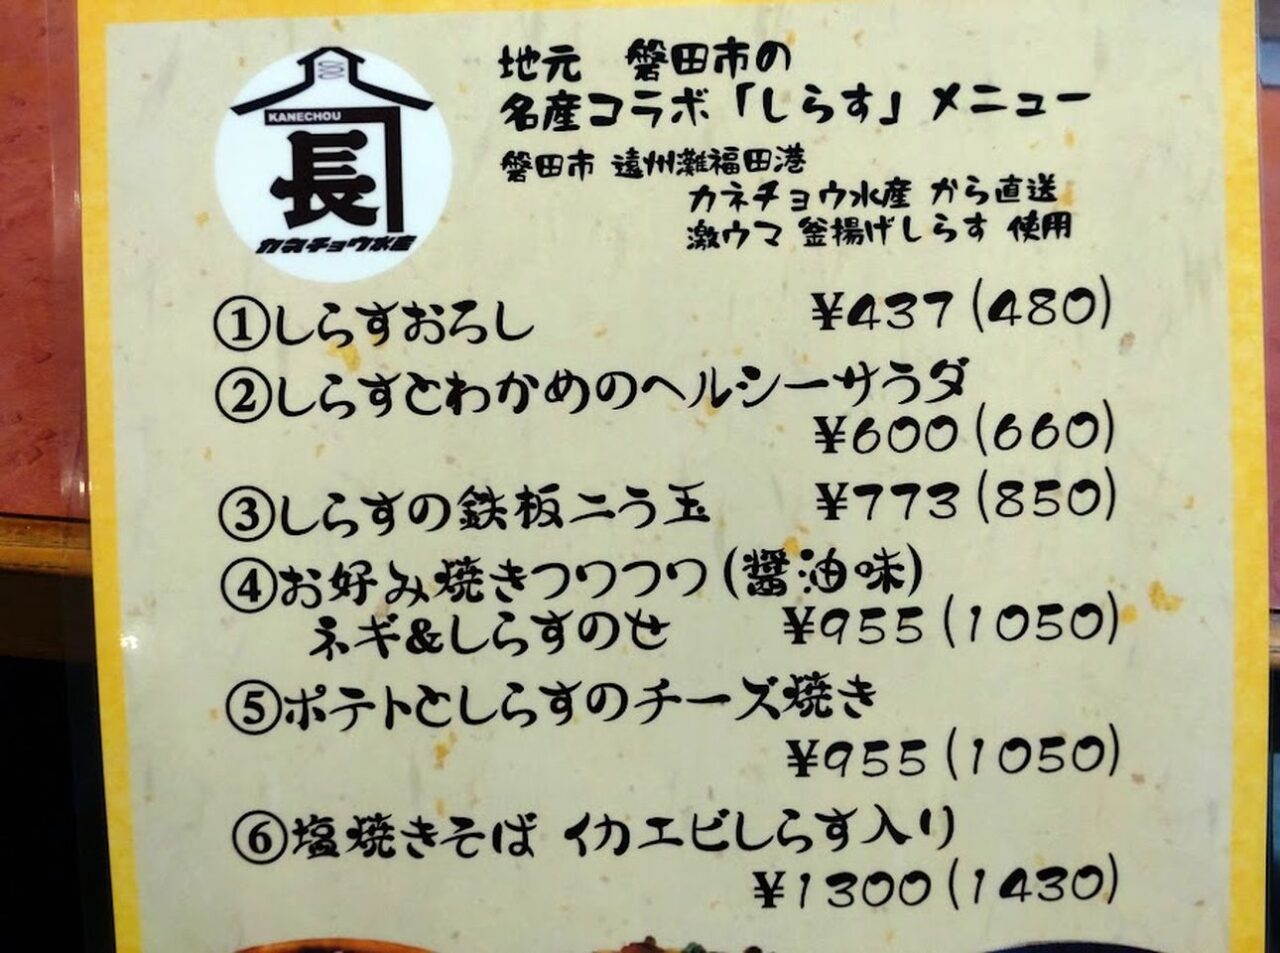 KANECHOU
長
カネチョウ水産
地元 磐田市の
名産コラボ「しらす」メニュー
磐田市 遠州灘福田港
カネチョウ水産 から直送
激ウマ 釜揚げしらす 使用
①しらすおろし ¥437(480)
②しらすとわかめのヘルシーサラダ
¥600(660)
③しらすの鉄板ニラ玉 ¥773(850)
④お好み焼きフワフワ(醤油味)
ネギ&しらすのせ ¥955(1050)
⑤ポテトとしらすのチーズ焼き
¥955(1050)
⑥塩焼きそば イカエビしらす入り
¥1300(1430)